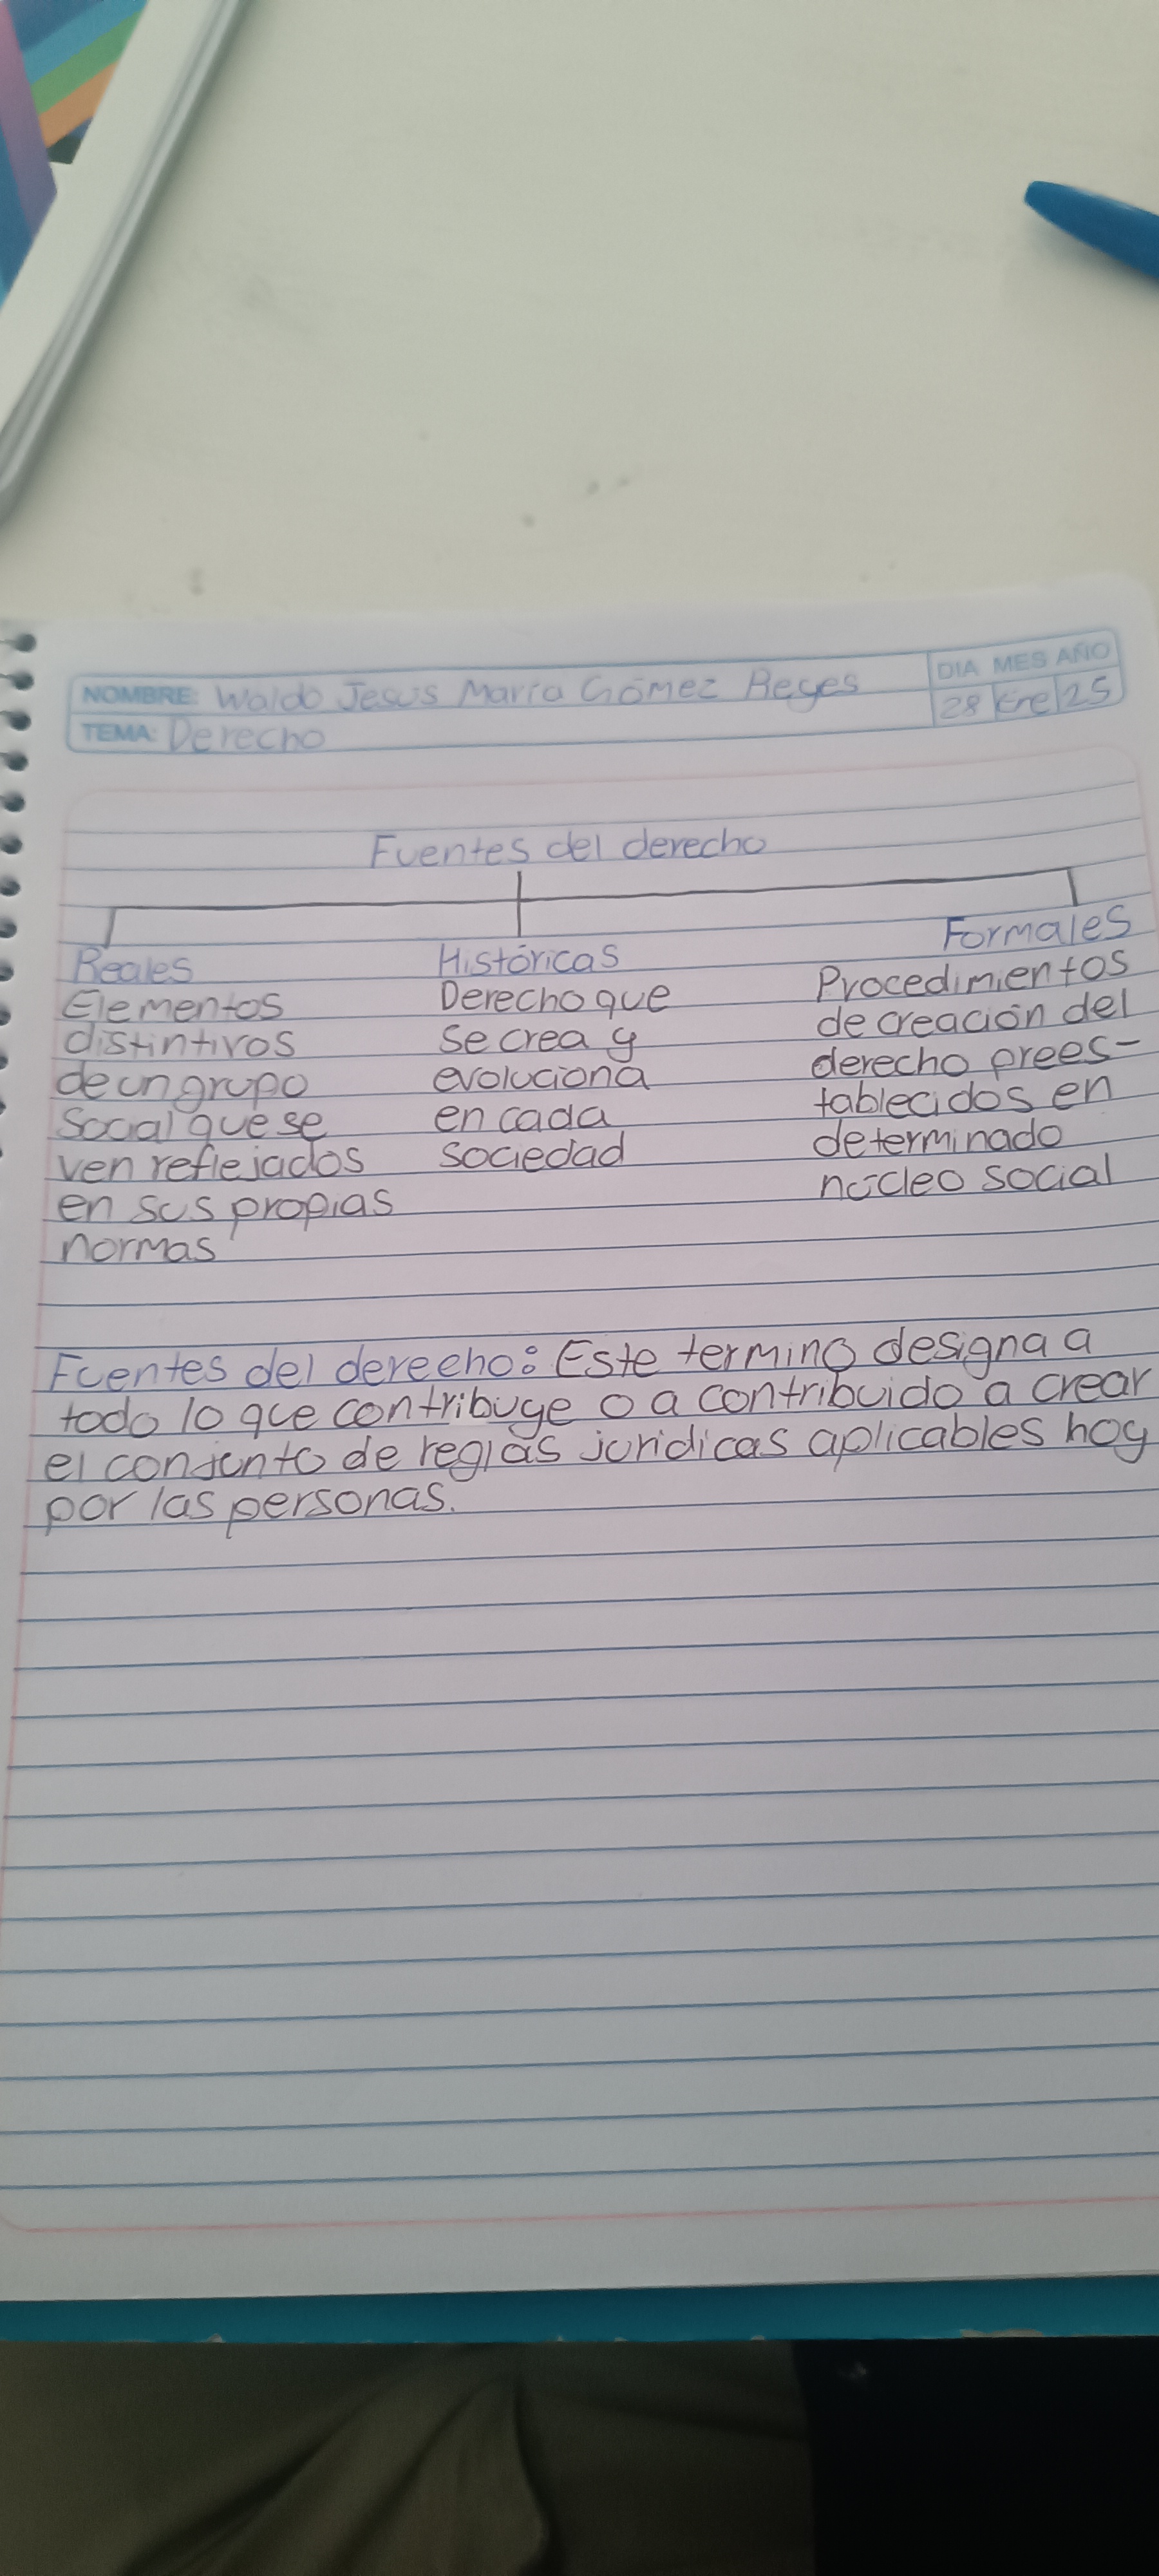 NOMBRE: Waldo Jesus María Gómez Reyes
DIA MES AÑO
28 Ene 25
TEMA: Derecho
Fuentes del derecho
Reales
Elementos
distintivos
de un grupo
Social que se
ven reflejados
en sus propias
normas
Históricas
Derecho que
se crea y
evoluciona
en cada
sociedad
Formales
Procedimientos
de creación del
derecho prees-
tablecidos en
determinado
núcleo social
Fuentes del derecho: Este termino designa a
todo lo que contribuye o a contribuido a crear
el conjunto de reglas juridicas aplicables hoy
por las personas.